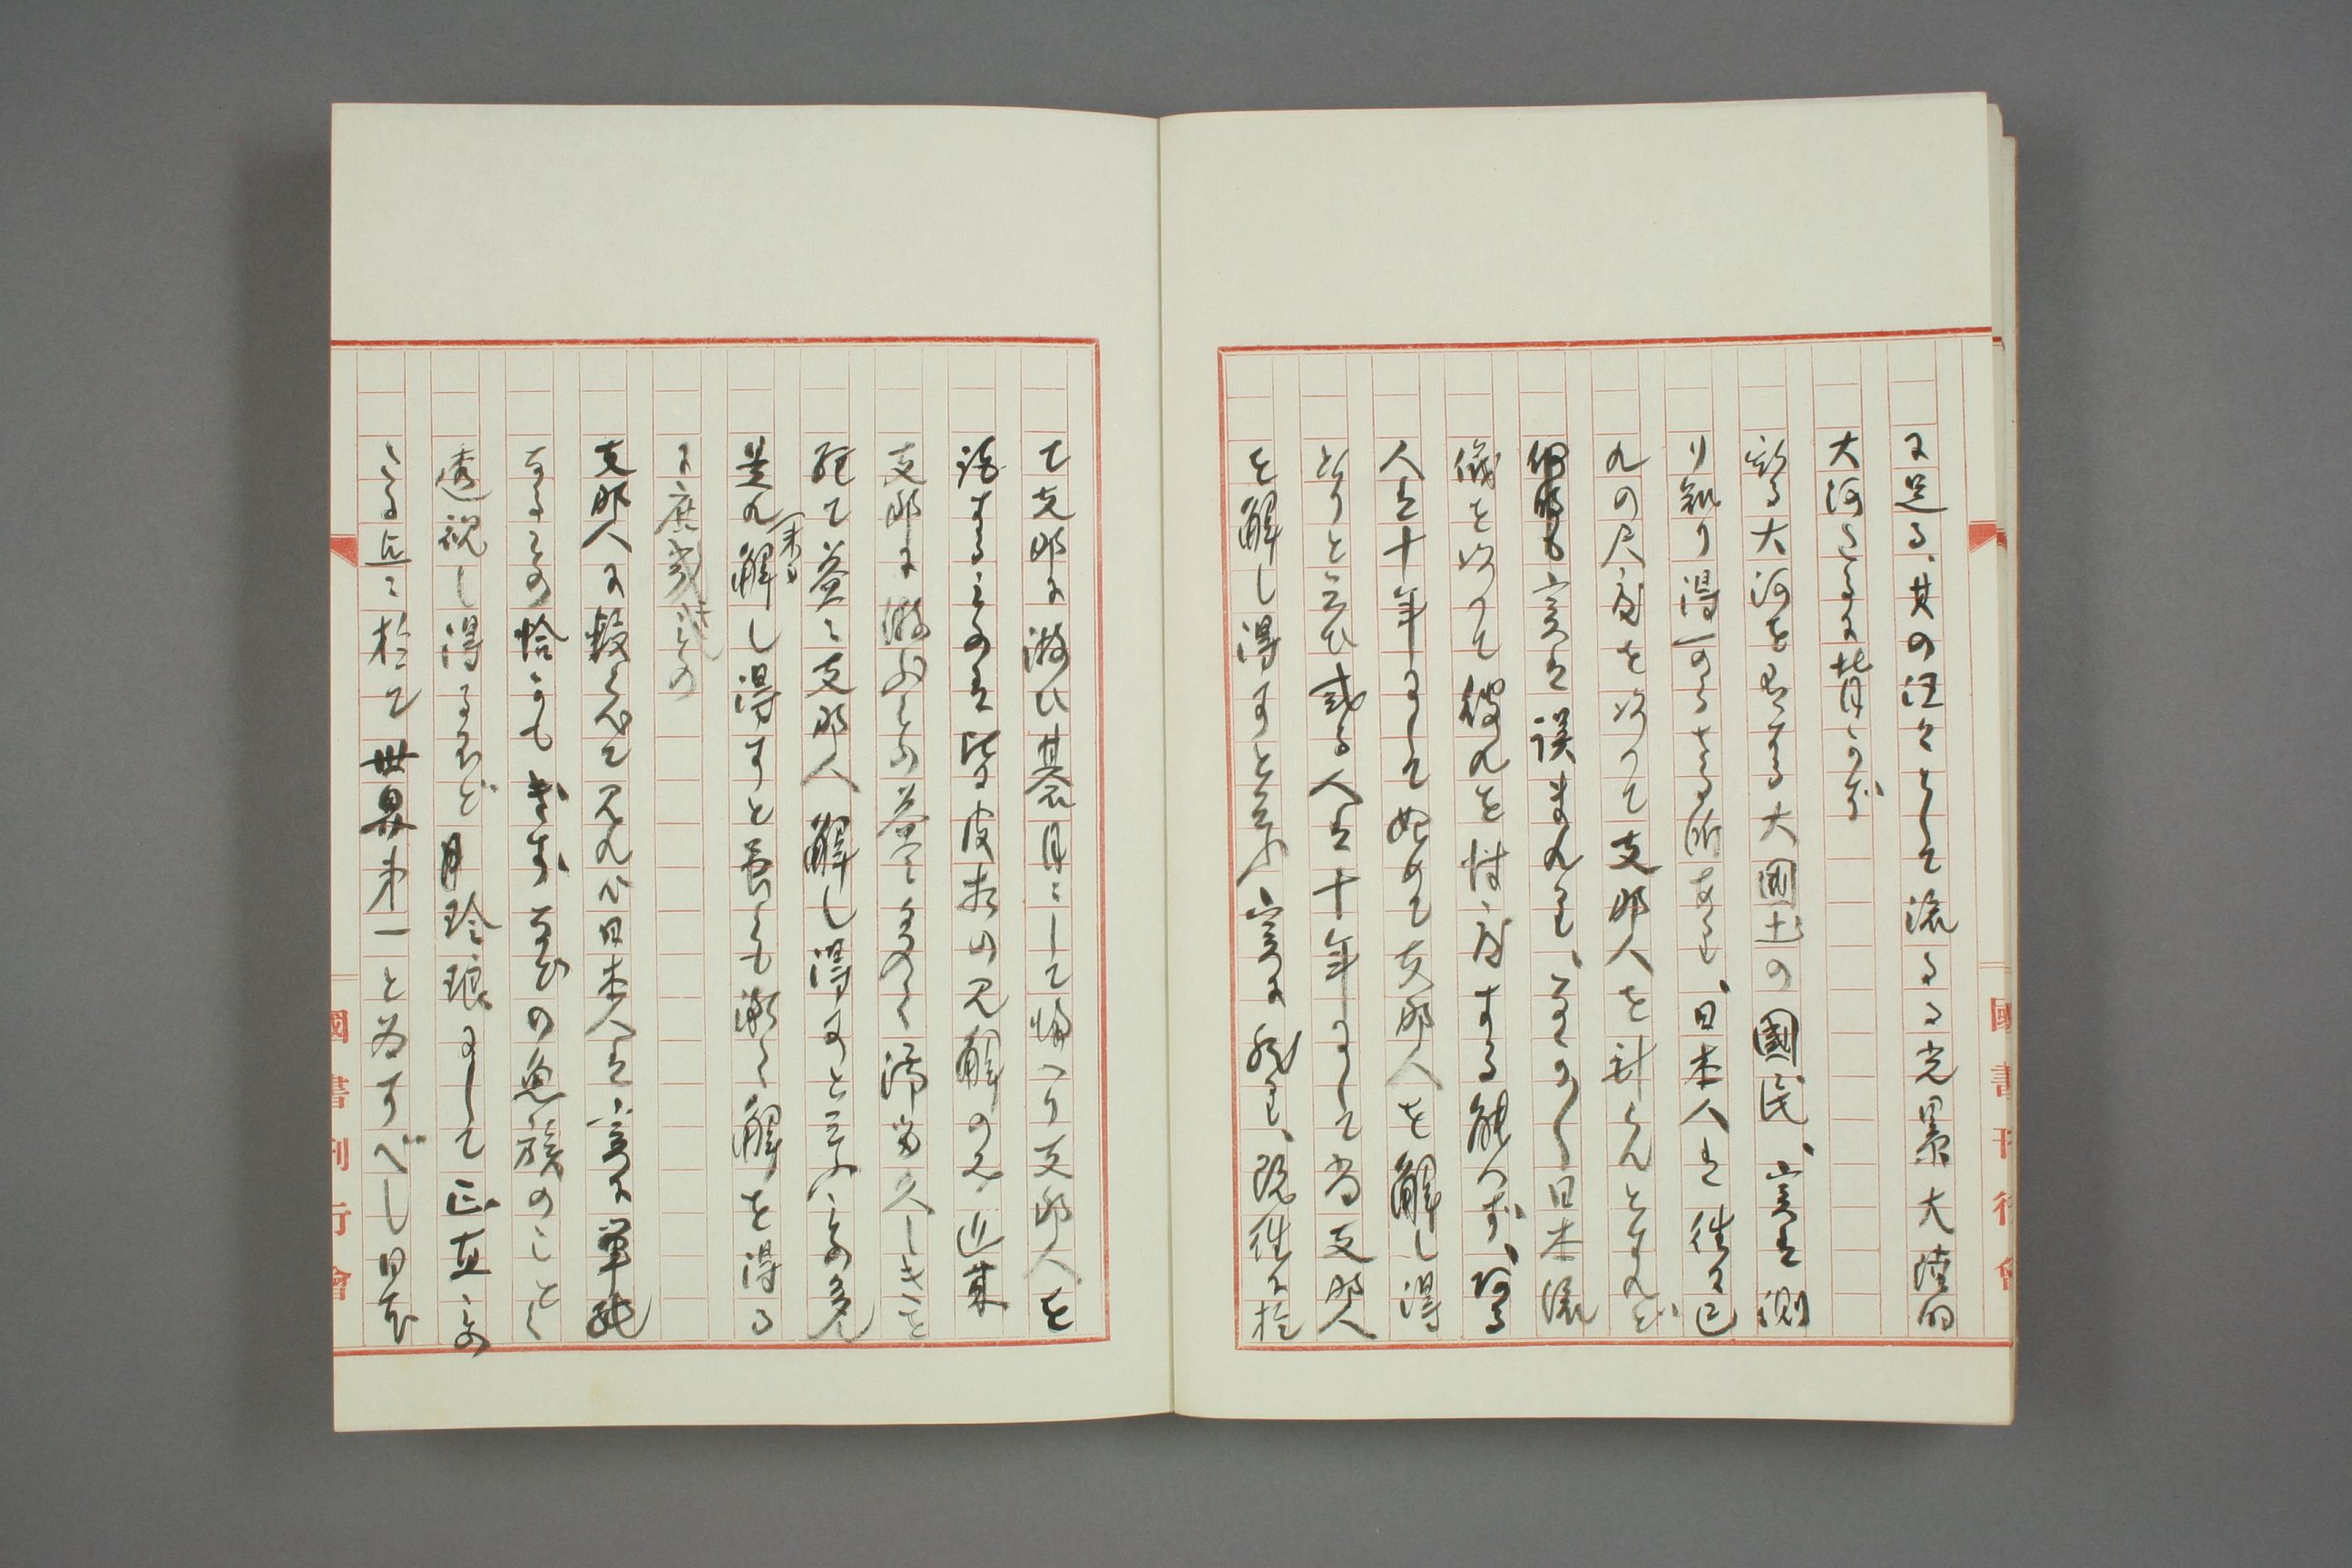 に足る、其の汪々として流るる光景大陸的
大河たるに背かず
斯る大河を有する大国土の国民、実は測
り知り得べからざる所あるも、日本人は往々己
れの尺度を以つて支那人を計らんとすれど
何時も実は誤まれるも、
儀を以つて彼れを忖度する能はず、或る
人は十年にして始めて支那人を解し得
たりと云ひ或る人は十年にして尚支那人
を解し得ずと云ふ、実に然り、既往に於
て支那に游ひ碁月にして帰へり支那人を
説するものは皆な皮相の見解のみ、近来
支那に游ふもの益々多く滞留久しきを
経て益々支那人解し得ずと云ふもの多
是れ(未だ)解し得ずと曰ふも漸く解を得る
に庶幾きもの
支那人に較らべて見れば日本人は実に単純
なるもの恰かも
透視し得るほど玲瓏にして正直なの
たる点に於て世界第一と為すべし日本
國書刊行會
國書刊行會